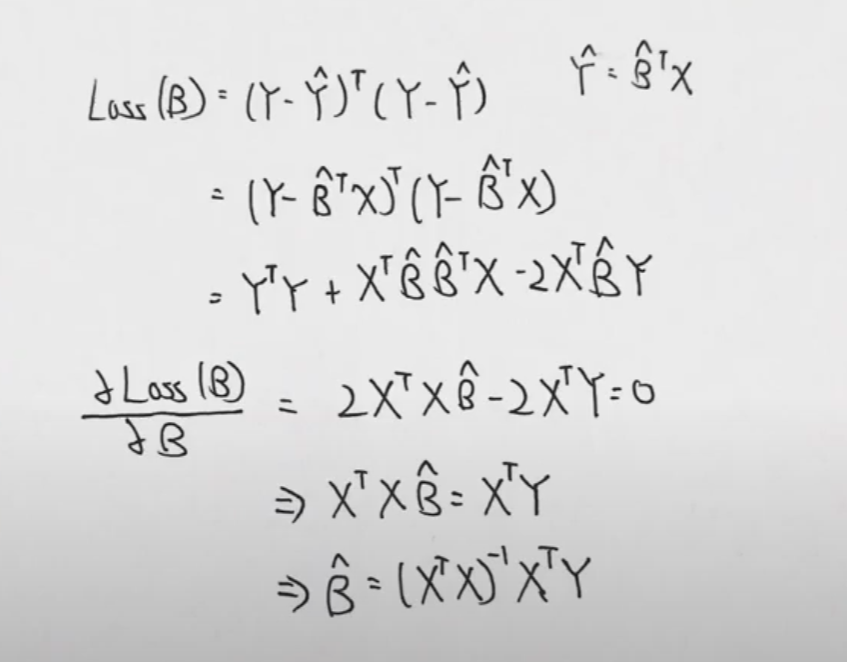 Loss (B) = (Y - Ŷ)ᵀ (Y - Ŷ)    Ŷ = B̂ᵀX
= (Y - B̂ᵀX)ᵀ (Y - B̂ᵀX)
= YᵀY + XᵀB̂B̂ᵀX - 2XᵀB̂Y
∂Loss (B) / ∂B = 2XᵀXB̂ - 2XᵀY = 0
⇒ XᵀXB̂ = XᵀY
⇒ B̂ = (XᵀX)⁻¹XᵀY